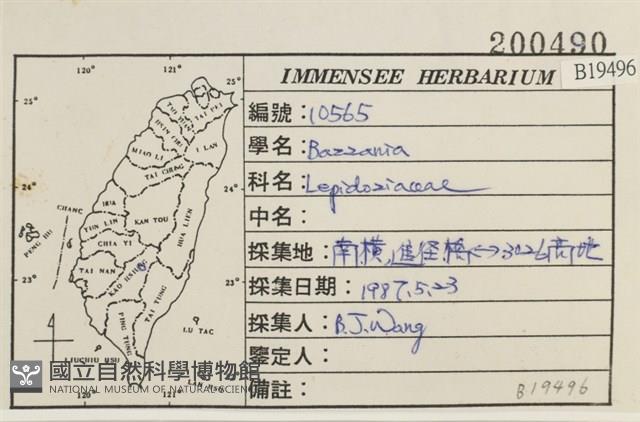 200490
IMMENSEE HERBARIUM
B19496
編號：10565
學名：Bazzania
科名：Lepidoziaceae
中名：
採集地：南橫,進徑橋↔3026高地
採集日期：1987.5.23
採集人：B.J.Wang
鑒定人：
備註：
B19496
120° 121°
25° 25°
TAO YUAN
TAI PEI
HSIN CHU
I LAN
MIAO LI
TAI CHUNG
24° 24°
CHANG HUA
NAN TOU
HUA LIEN
YUN LIN
PENG HU
CHIA YI
TAI NAN
KAO HSIUNG
23° 23°
TAI TUNG
PING TUNG
LU TAO
LIUCHIU HSU
120° 121°
國立自然科學博物館
NATIONAL MUSEUM OF NATURAL SCIENCE